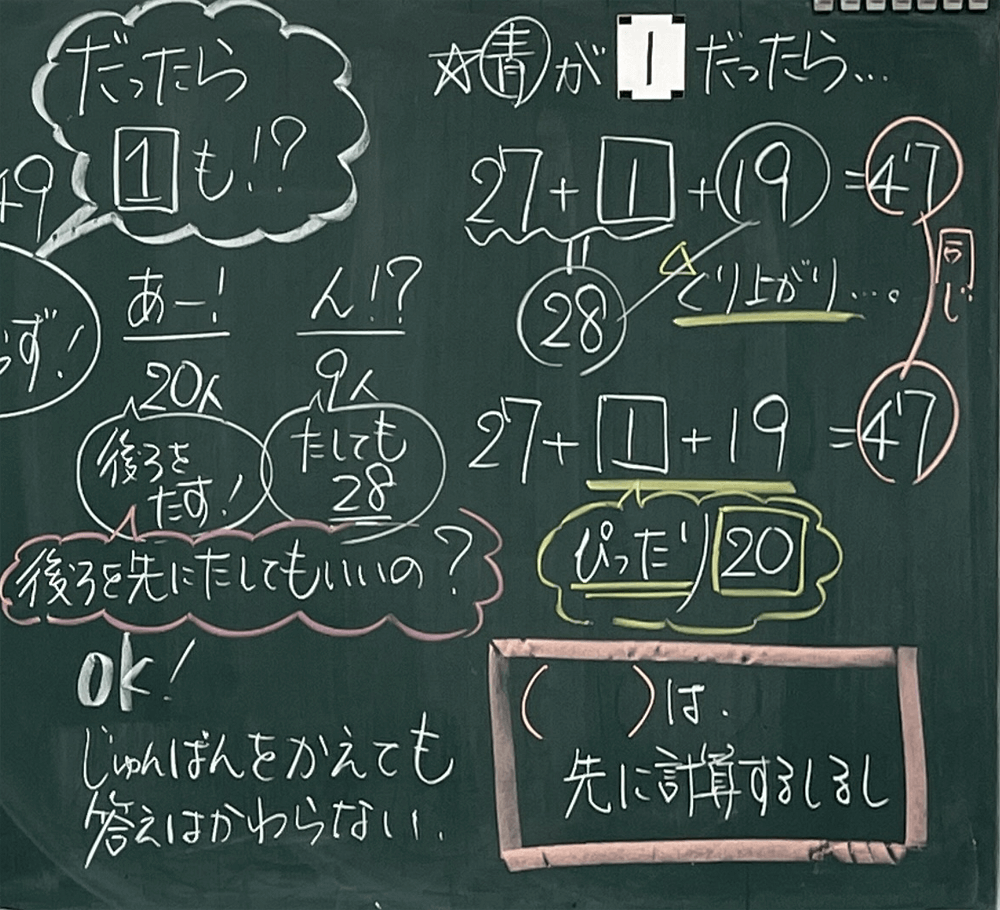 だったら
1も!?
49
ず!
あー!
20人
後ろを
たす!
ん!?
9人
たしても
28
後ろを先にたしてもいいの?
ok!
じゅんばんをかえても
答えはかわらない.
☆青が1だったら…
27+1+19=47
28
くり上がり…。
同じ
27+1+19=47
ぴったり20
(　　)は、
先に計算するしるし